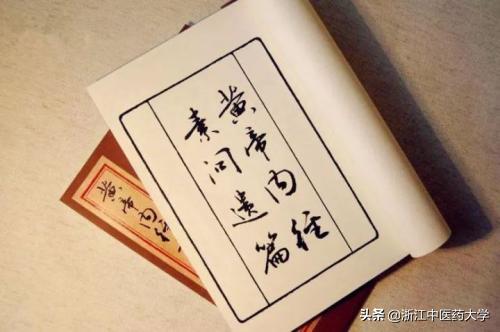 黄帝内经
素问遗篇
黄帝内经
头条 @浙江中医药大学